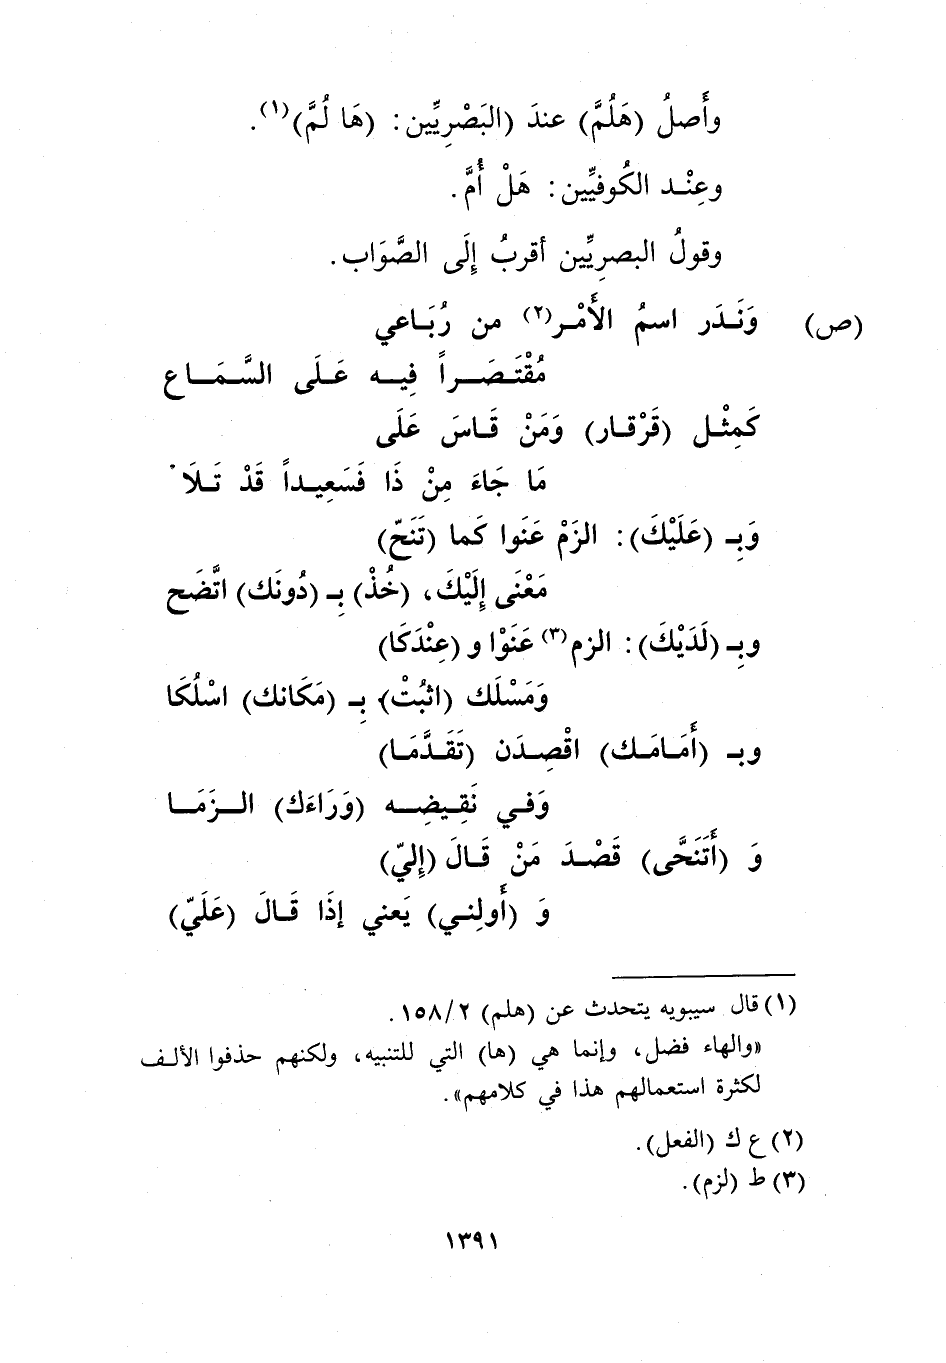 وأَصلُ (هَلُمَّ) عندَ (البَصْرِيِّين: (هَا لُمَّ)(١).
وعِنْد الكُوفيِّين: هَلْ أُمَّ.
وقولُ البصرِيِّين أقربُ إِلَى الصَّوَاب.
(ص) وَنَدَر اسمُ الأَمْر(٢) من رُبَاعي
مُقْتَصَراً فِيه عَلَى السَّمَاع
كَمِثْل (قَرْقار) وَمَنْ قَاسَ عَلَى
مَا جَاءَ مِنْ ذَا فَسَعِيداً قَدْ تَلَا
وَبِـ (عَلَيْكَ): الزَمْ عَنَوا كَما (تَنَحّ)
مَعْنَى إِلَيْكَ، (خُذْ) بِـ (دُونَك) اتَّضَح
وبِـ (لَدَيْكَ): الزم(٣) عَنَوْا و (عِنْدَكَا)
وَمَسْلَك (اثبُتْ) بِـ (مَكَانك) اسْلُكَا
وبـ (أَمَامَك) اقْصِدَن (تَقَدَّمَا)
وَفي نَقِيضِه (وَرَاءَك) الزَمَا
وَ (أَتَنَحَّى) قَصْدَ مَنْ قَالَ (إِليّ)
وَ (أَولِني) يَعني إذَا قَالَ (عَلَيّ)
(١) قال سيبويه يتحدث عن (هلم) ١٥٨/٢.
«والهاء فضل، وإنما هي (ها) التي للتنبيه، ولكنهم حذفوا الألف
لكثرة استعمالهم هذا في كلامهم».
(٢) ع ك (الفعل).
(٣) ط (لزم).
١٣٩١